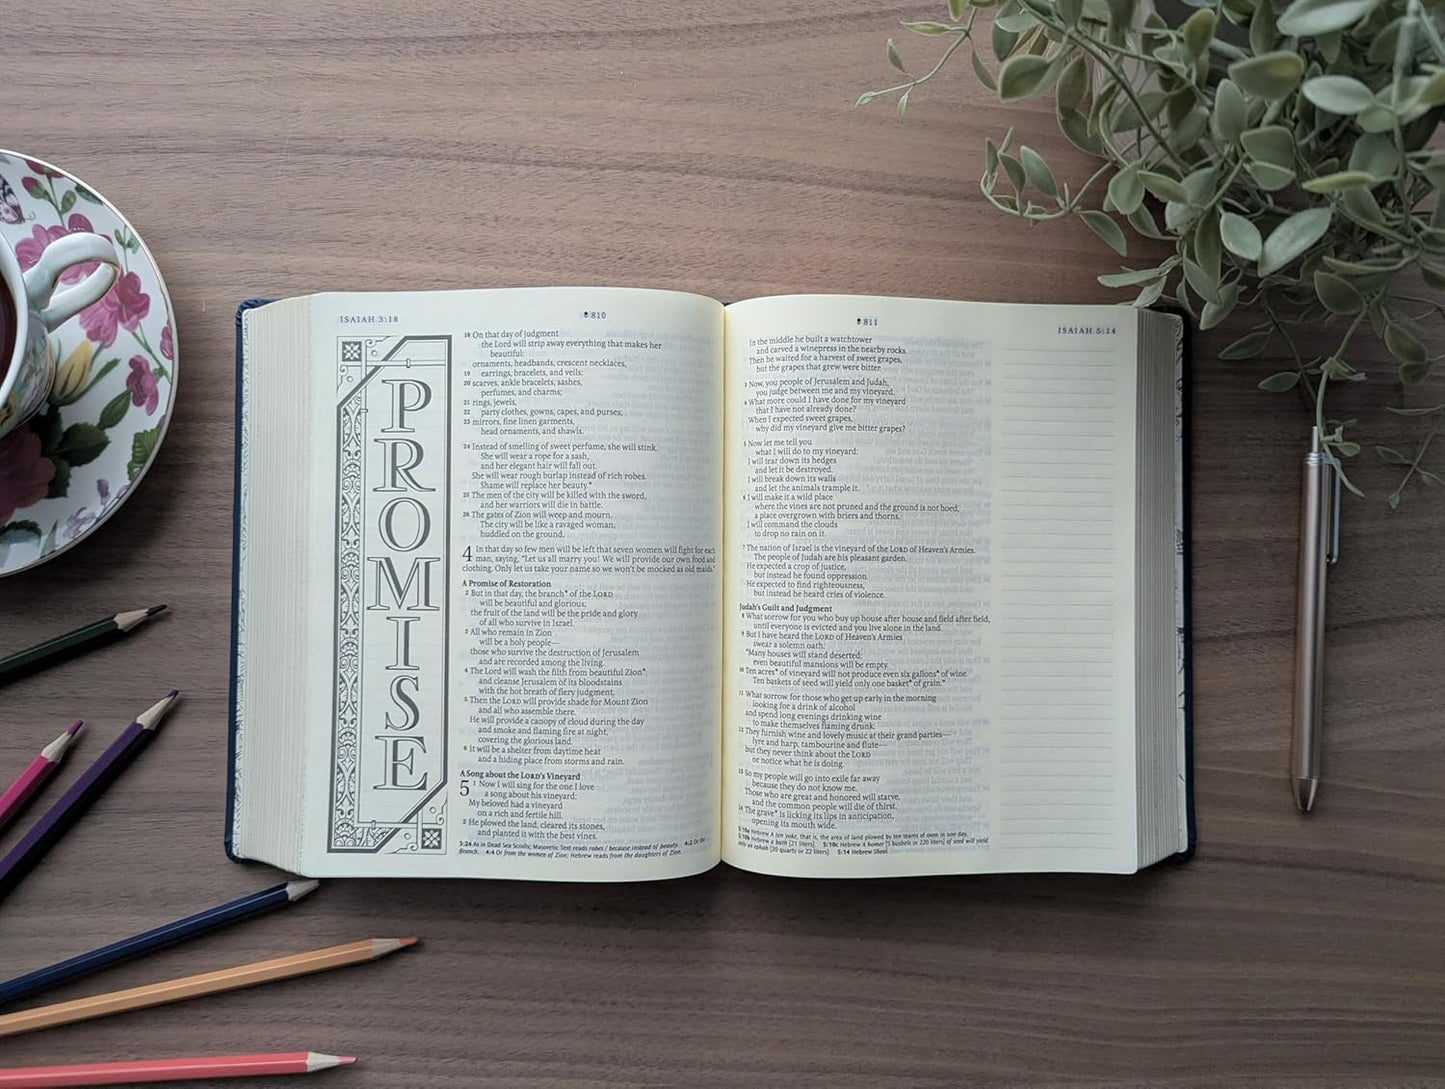 ISAIAH 3:18
810
PROMISE
18 On that day of judgment
the Lord will strip away everything that makes her
beautiful:
ornaments, headbands, crescent necklaces,
19 earrings, bracelets, and veils;
20 scarves, ankle bracelets, sashes,
perfumes, and charms;
21 rings, jewels,
22 party clothes, gowns, capes, and purses;
23 mirrors, fine linen garments,
head ornaments, and shawls.
24 Instead of smelling of sweet perfume, she will stink.
She will wear a rope for a sash,
and her elegant hair will fall out.
She will wear rough burlap instead of rich robes.
Shame will replace her beauty.*
25 The men of the city will be killed with the sword,
and her warriors will die in battle.
26 The gates of Zion will weep and mourn.
The city will be like a ravaged woman,
huddled on the ground.
4 In that day so few men will be left that seven women will fight for each
man, saying, "Let us all marry you! We will provide our own food and
clothing. Only let us take your name so we won't be mocked as old maids."
A Promise of Restoration
2 But in that day, the branch* of the LORD
will be beautiful and glorious;
the fruit of the land will be the pride and glory
of all who survive in Israel.
3 All who remain in Zion
will be a holy people—
those who survive the destruction of Jerusalem
and are recorded among the living.
4 The Lord will wash the filth from beautiful Zion*
and cleanse Jerusalem of its bloodstains
with the hot breath of fiery judgment.
5 Then the LORD will provide shade for Mount Zion
and all who assemble there.
He will provide a canopy of cloud during the day
and smoke and flaming fire at night,
covering the glorious land.
6 It will be a shelter from daytime heat
and a hiding place from storms and rain.
A Song about the LORD's Vineyard
5 1 Now I will sing for the one I love
a song about his vineyard:
My beloved had a vineyard
on a rich and fertile hill.
2 He plowed the land, cleared its stones,
and planted it with the best vines.
3:24 As in Dead Sea Scrolls; Masoretic Text reads robes / because instead of beauty. 4:2 Or the
Branch. 4:4 Or from the women of Zion; Hebrew reads from the daughters of Zion.
811
ISAIAH 5:14
In the middle he built a watchtower
and carved a winepress in the nearby rocks.
Then he waited for a harvest of sweet grapes,
but the grapes that grew were bitter.
3 Now, you people of Jerusalem and Judah,
you judge between me and my vineyard.
4 What more could I have done for my vineyard
that I have not already done?
When I expected sweet grapes,
why did my vineyard give me bitter grapes?
5 Now let me tell you
what I will do to my vineyard:
I will tear down its hedges
and let it be destroyed.
I will break down its walls
and let the animals trample it.
6 I will make it a wild place
where the vines are not pruned and the ground is not hoed,
a place overgrown with briers and thorns.
I will command the clouds
to drop no rain on it.
7 The nation of Israel is the vineyard of the LORD of Heaven's Armies.
The people of Judah are his pleasant garden.
He expected a crop of justice,
but instead he found oppression.
He expected to find righteousness,
but instead he heard cries of violence.
Judah's Guilt and Judgment
8 What sorrow for you who buy up house after house and field after field,
until everyone is evicted and you live alone in the land.
9 But I have heard the LORD of Heaven's Armies
swear a solemn oath:
"Many houses will stand deserted;
even beautiful mansions will be empty.
10 Ten acres* of vineyard will not produce even six gallons* of wine.
Ten baskets of seed will yield only one basket* of grain."
11 What sorrow for those who get up early in the morning
looking for a drink of alcohol
and spend long evenings drinking wine
to make themselves flaming drunk.
12 They furnish wine and lovely music at their grand parties—
lyre and harp, tambourine and flute—
but they never think about the LORD
or notice what he is doing.
13 So my people will go into exile far away
because they do not know me.
Those who are great and honored will starve,
and the common people will die of thirst.
14 The grave* is licking its lips in anticipation,
opening its mouth wide.
5:10a Hebrew A ten yoke, that is, the area of land plowed by ten teams of oxen in one day.
5:10b Hebrew a bath [21 liters]. 5:10c Hebrew A homer [5 bushels or 220 liters] of seed will yield
only an ephah [20 quarts or 22 liters]. 5:14 Hebrew Sheol.